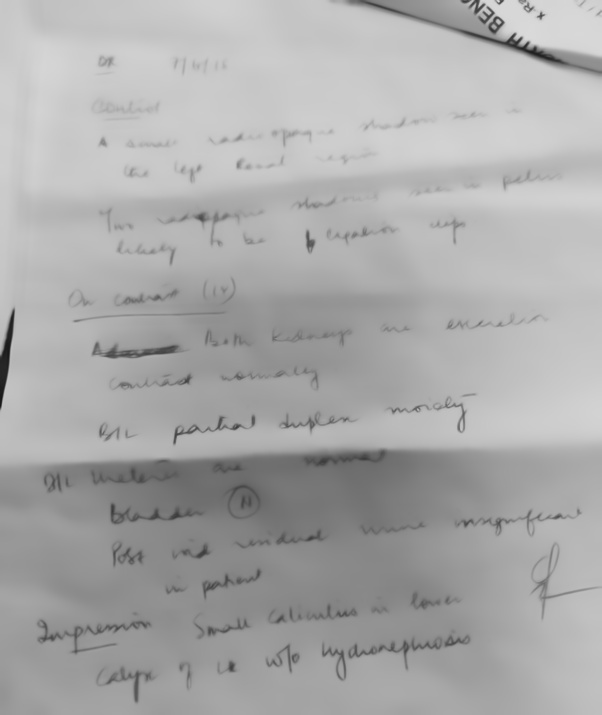 TH BENG
X-Ra
DR 7/4/16
Control
A small radiopaque shadow seen in
the left Renal region
Two radiopaque shadows seen in pelvis
likely to be ligation clips
On contrast (IV)
Both kidneys are excretion
contrast normally
B/L partial duplex moiety
B/L Ureters are normal
Bladder (N)
Post void residual urine insignificant
in patient
Impression Small calculus in lower
Calyx of Lk w/o hydronephrosis